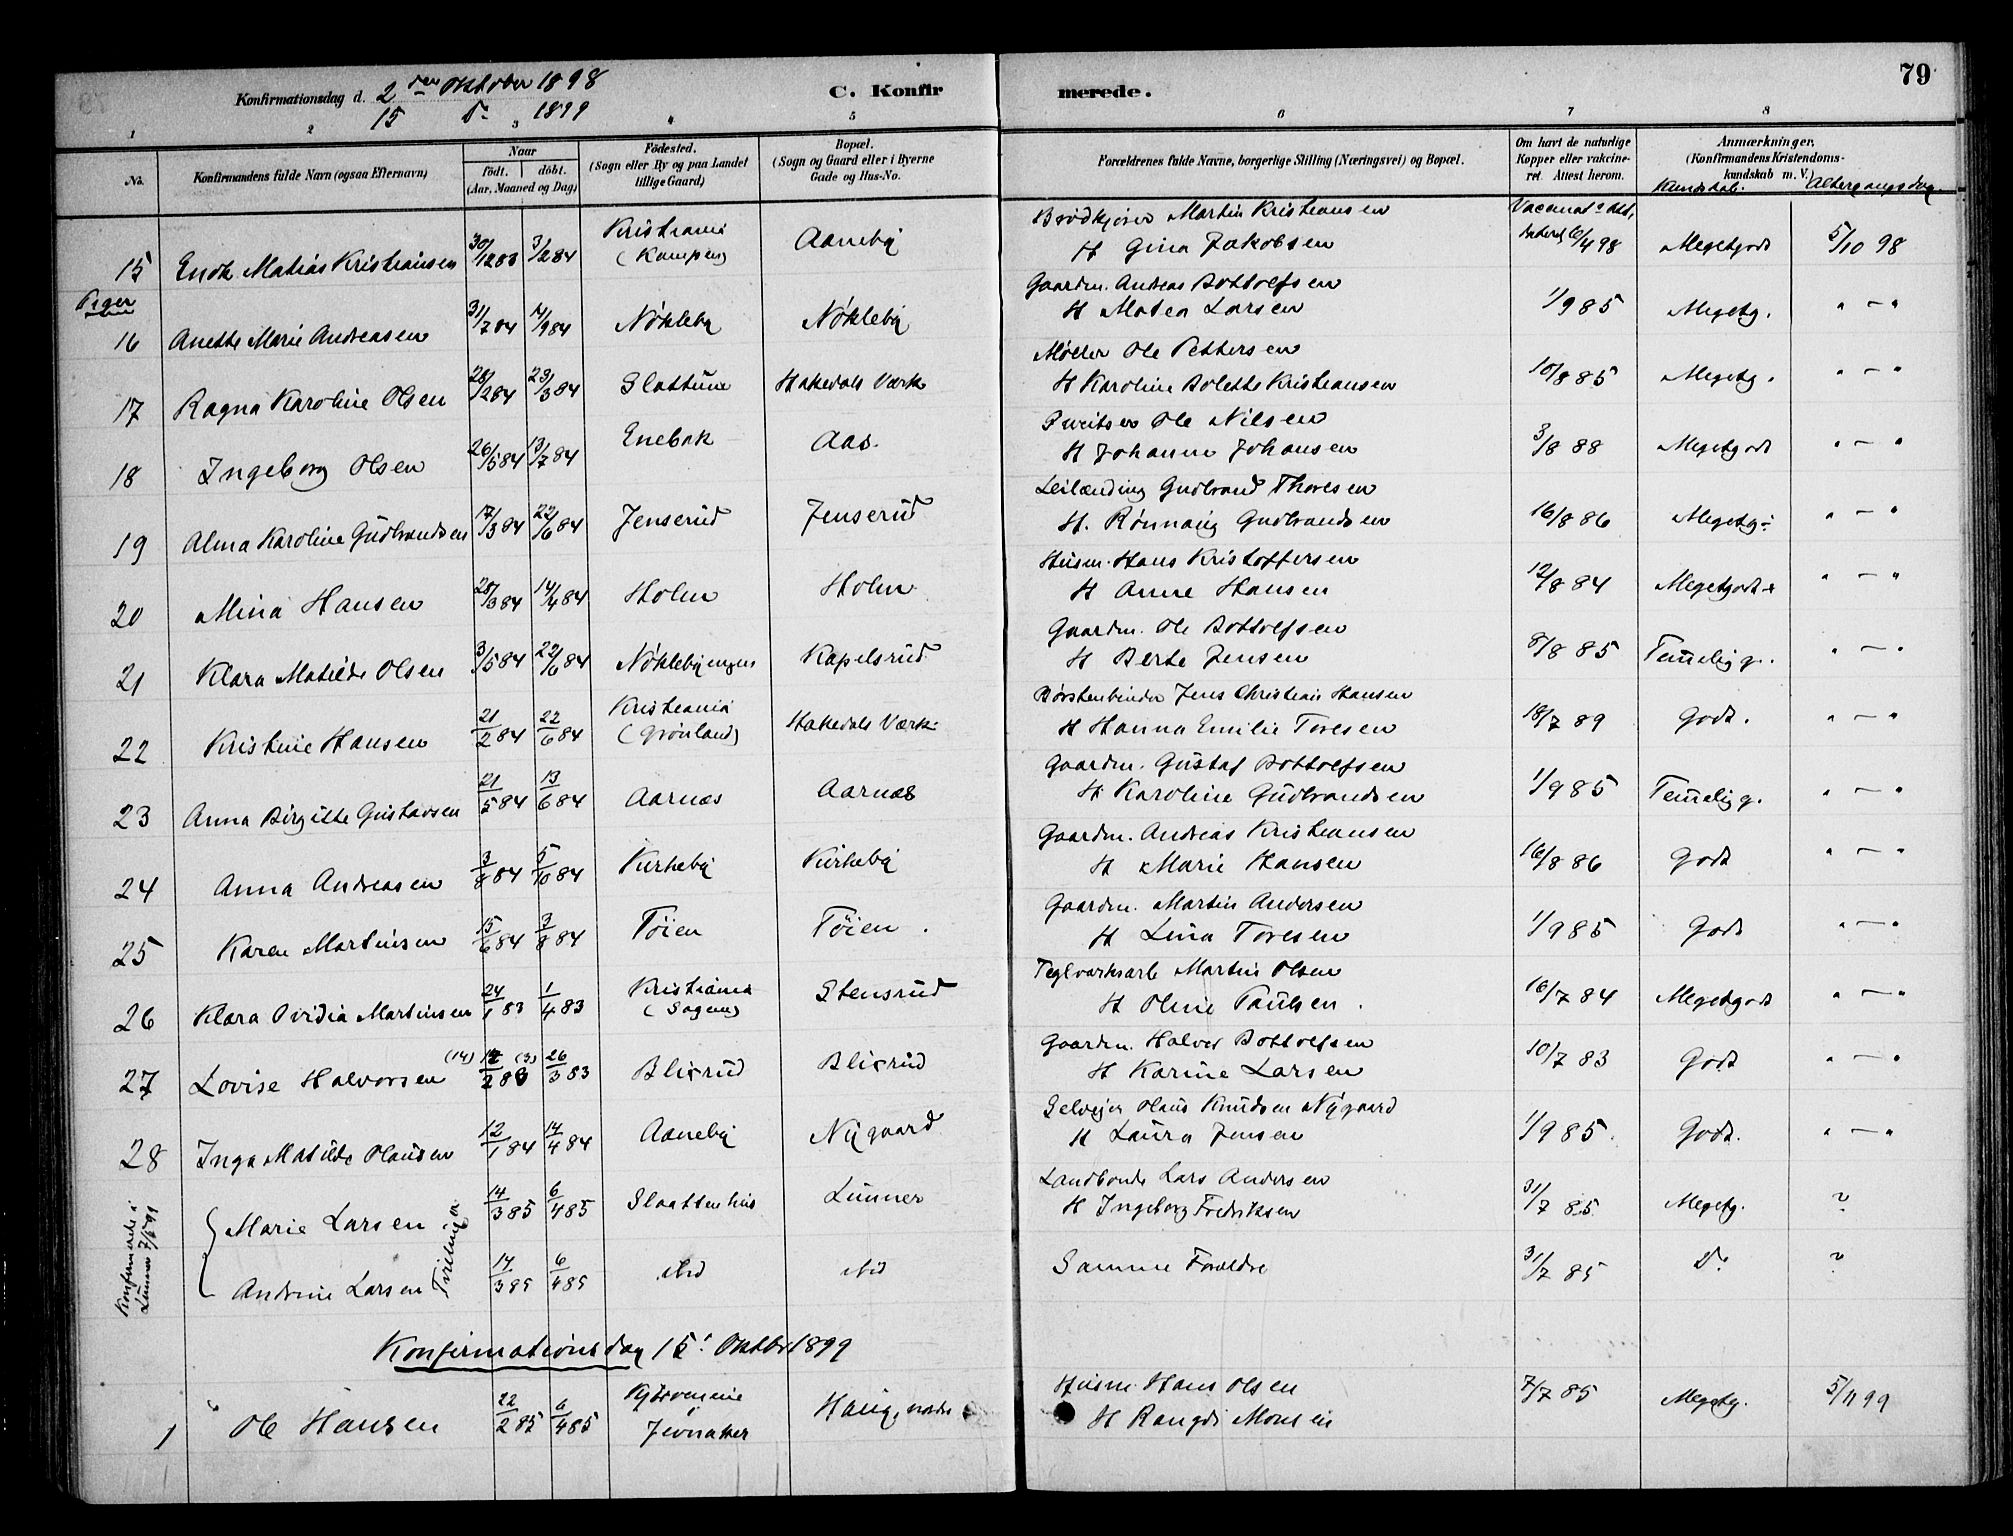 79
Konfirmationsdag d. 2den Oktober 1898
15 Do 1899
C. Konfirmerede.
1 2 3 4 5 6 7 8
No. Konfirmandens fulde Navn (ogsaa Efternavn) Naar født. døbt. (Aar, Maaned og Dag) Fødested. (Sogn eller By og paa Landet tillige Gaard) Bopæl. (Sogn og Gaard eller i Byerne Gade og Hus-No. Forældrenes fulde Navne, borgerlige Stilling (Næringsvei) og Bopæl. Om havt de naturlige Kopper eller vakcineret. Attest herom. Anmærkninger. (Konfirmandens Kristendomskundskab m. V.)
Kundskab. Altergangsdag.
Brødkjører Martin Kristiansen Vaccinat. Att.
15 Enok Matias Kristiansen 30/12 83 3/2 84 Kristiania (Kampen) Aaneby H Gina Jakobsen 6/4 98 Megetgodt 5/10 98
Piger
Gaardm. Andreas Bottolfsen
16 Anette Marie Andreasen 31/7 84 14/9 84 Nökleby Nökleby H Matea Larsen 1/9 85 Megetg. " — "
Møller Ole Pettersen
17 Ragna Karoline Olsen 28/2 84 23/3 84 Slattum Hakedals Værk H Karoline Bolette Kristiansen 10/8 85 Megetg. " — "
Ole Nilsen
18 Ingeborg Olsen 26/5 84 13/7 84 Enebak Aas. H Johanne Johansen 3/8 88 Megetgodt " — "
Leilænding Gudbrand Thoresen
19 Alma Karoline Gudbrandsen 17/3 84 22/6 84 Jenserud Jenserud H. Rønnaug Gudbrandsen 16/8 86 Megetg. " — "
Husm. Hans Kristoffersen
20 Mina Hansen 28/3 84 14/4 84 Holm Holm H Anne Hansen 12/8 84 Megetgodt " — "
Gaardm. Ole Bottolfsen
21 Klara Matilde Olsen 3/5 84 22/6 84 Nöklebyengen Kapelsrud H Berte Jensen 8/8 85 Temelig g. " — "
Børstenbinder Jens Christian Hansen
22 Kristine Hansen 21/2 84 22/6 84 Kristiania (Grønland) Hakedals Værk H Hanna Emilie Toresen 18/7 89 Godt. " — "
Gaardm. Gustaf Bottolfsen
23 Anna Birgitte Gustavsen 21/5 84 13/6 84 Aarnæs Aarnæs H Karoline Gudbrandsen 1/9 85 Temelig g. " — "
Gaardm. Andreas Kristiansen
24 Anna Andreasen 3/8 84 5/10 84 Kirkeby Kirkeby H Marie Hansen 16/8 86 Godt " — "
Gaardm. Martin Andersen
25 Karen Martinsen 15/6 84 3/8 84 Tøien Tøien. H Lina Toresen 1/9 85 Godt " — "
Teglværksarb Martin Olsen
26 Klara Ovidia Martinsen 24/1 83 1/4 83 Kristiania (Sagene) Stensrud H Oline Paulsen. 16/7 84 Megetgodt " — "
Gaardm. Halvor Bottolfsen
27 Lovise Halvorsen (14) (3) 26/3 83 Blisrud Blisrud H Karine Larsen 10/7 83 Godt " — "
Selveier Olaus Knudsen Nygaard
28 Inga Matilde Olausen 12/1 84 14/4 84 Aaneby Nygaard H Laura Jensen 1/9 85. Godt. " — "
Konfirmerede i Lunner 7/5 99
Landbonde Lars Andersen
Marie Larsen 14/3 85 6/4 85 Slaattenhus Lunner H Ingeborg Fredriksen 31/7 85 Megetg. ?
Tvillinger
Andrine Larsen 14/3 85 6/4 85 ibid ibid Samme Forældre 31/7 85 Do ?
Konfirmationsdag 15' Oktbr 1899
Husm. Hans Olsen
1 Ole Hansen 22/2 85 6/4 85 Haug, nordre H Rangdi Monsen 7/7 85 Megetg. 5/11 99